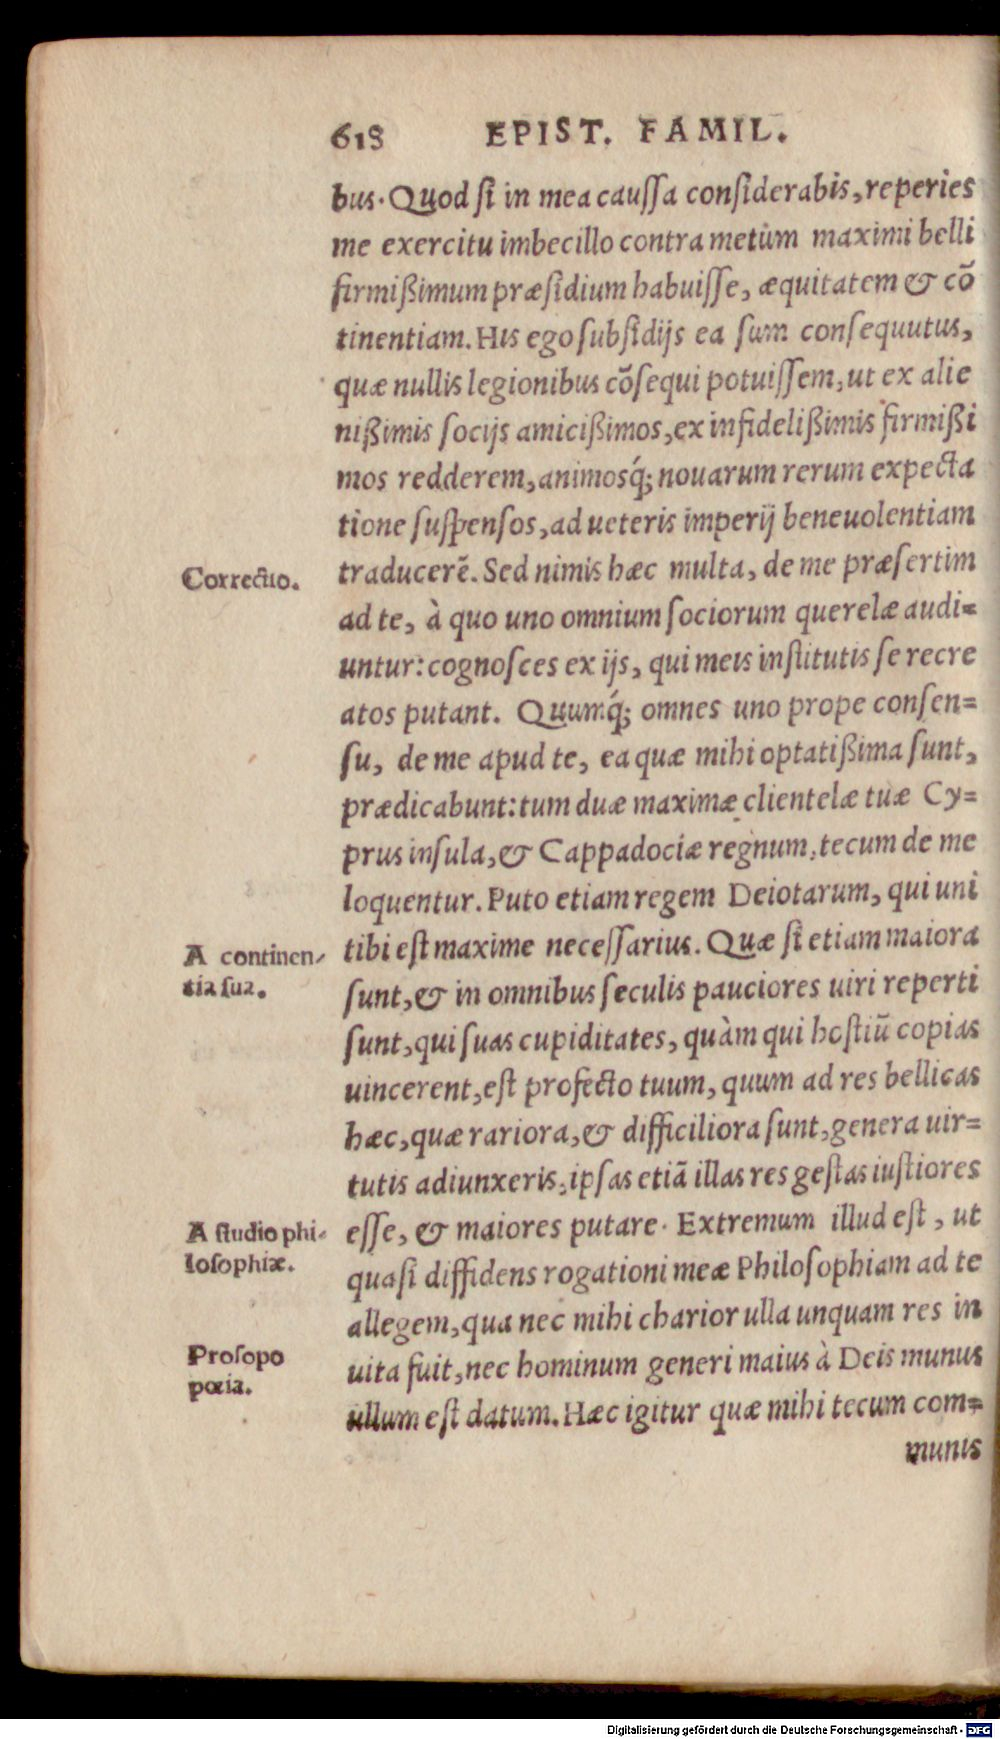 618 EPIST. FAMIL.
bus. Quod ſi in mea cauſſa conſiderabis, reperies
me exercitu imbecillo contra metùm maximi belli
firmißimum præſidium habuiſſe, æquitatem & cõ
tinentiam. His ego ſubſidijs ea ſum conſequutus,
quæ nullis legionibus cõſequi potuiſſem, ut ex alie
nißimis ſocijs amicißimos, ex infidelißimis firmißi
mos redderem, animosq́; nouarum rerum expecta
tione ſuſpenſos, ad ueteris imperij beneuolentiam
Correctio.
traducerẽ. Sed nimis hæc multa, de me præſertim
ad te, à quo uno omnium ſociorum querelæ audi=
untur: cognoſces ex ijs, qui meis inſtitutis ſe recre
atos putant. Quumq́; omnes uno prope conſen=
ſu, de me apud te, ea quæ mihi optatißima ſunt,
prædicabunt: tum duæ maximæ clientelæ tuæ Cy=
prus inſula, & Cappadociæ regnum, tecum de me
loquentur. Puto etiam regem Deiotarum, qui uni
A continen-
tia ſua.
tibi eſt maxime neceſſarius. Quæ ſi etiam maiora
ſunt, & in omnibus ſeculis pauciores uiri reperti
ſunt, qui ſuas cupiditates, quàm qui hoſtiũ copias
uincerent, eſt profecto tuum, quum ad res bellicas
hæc, quæ rariora, & difficiliora ſunt, genera uir=
tutis adiunxeris, ipſas etiã illas res geſtas iuſtiores
A ſtudio phi-
loſophiæ.
eſſe, & maiores putare. Extremum illud eſt, ut
quaſi diffidens rogationi meæ Philoſophiam ad te
allegem, qua nec mihi charior ulla unquam res in
Proſopo
pœia.
uita fuit, nec hominum generi maius à Deis munus
ullum eſt datum. Hæc igitur quæ mihi tecum com=
munis
Digitalisierung gefördert durch die Deutsche Forschungsgemeinschaft - DFG